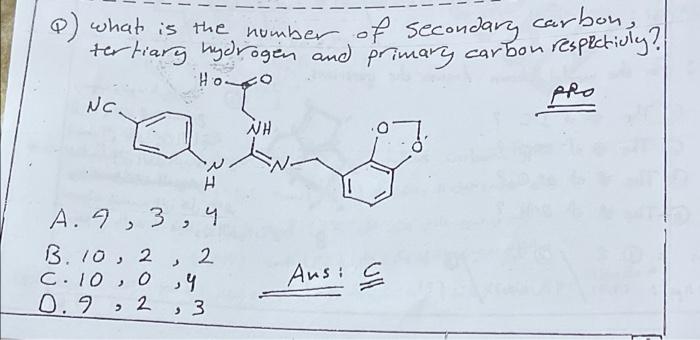 Q) what is the number of secondary carbon,
tertiary hydrogen and primary carbon respectively?
PRO
HO O
NC
NH
O
O
N
H
N
A. 9, 3, 4
B. 10, 2, 2
C. 10, 0, 4
D. 9, 2, 3
Ans: C